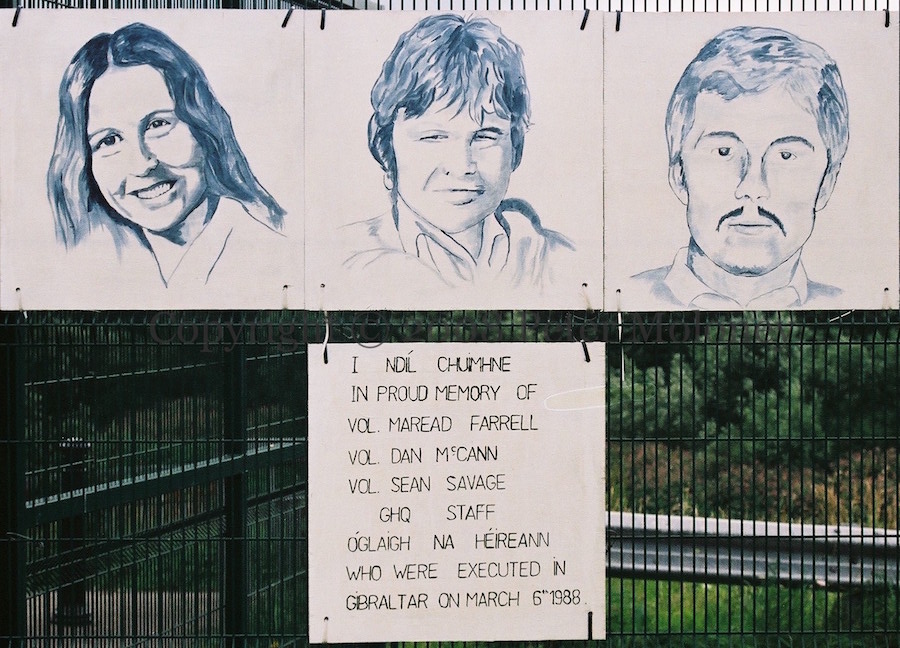 I NDÍL CHUIMHNE
IN PROUD MEMORY OF
VOL. MAREAD FARRELL
VOL. DAN McCANN
VOL. SEAN SAVAGE
GHQ STAFF
ÓGLAIGH NA HÉIREANN
WHO WERE EXECUTED IN
GIBRALTAR ON MARCH 6TH 1988.
Copyright ©